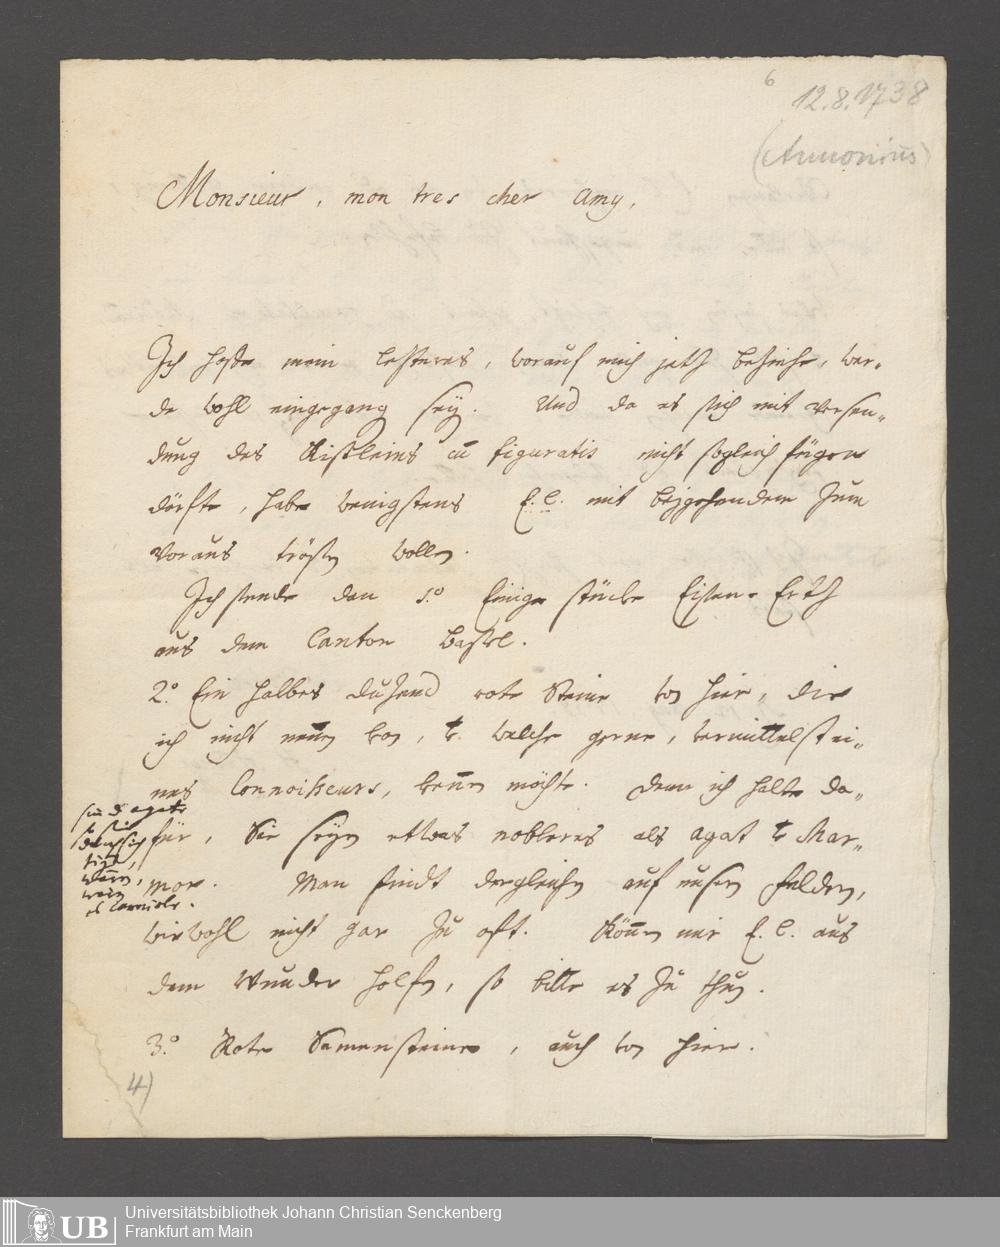 6
12.8.1738
(Annonius)
Monsieur, mon tres cher Amy,
Ich hoffe mein letsteres, worauf mich jetz beziehe, wer-
de wohl eingegang seÿ. Und da es sich mit versen-
dung des Kistleins cū figuratis nicht sogleich fügen
dörfte, habe wenigstens E. E. mit beÿgehendem zum
voraus trösten wollen.
Ich sende den 1.° Einige stücke Eisen-Ertz
aus dem Canton Basel.
2.° Ein halbes dutzend rote Steine von hier, die
ich nicht neñen kan, u. welche gerne, vermittelst ei-
nes Connoisseurs, keñen möchte. Denn ich halte da-
für, Sie seyn etwas nobleres als agat u. Mar-
mor. Man findt dergleichen auf unsern Felden,
wiewohl nicht gar zu oft. Könen mir E. E. aus
dem Wunder helfen, so bitte es zu thun.
3.° Rote Samensteine, auch von hier.
sind agate
so sie
durchsich
tig
wañ,
wein
es Carniole.
4)
Universitätsbibliothek Johann Christian Senckenberg
Frankfurt am Main
UB